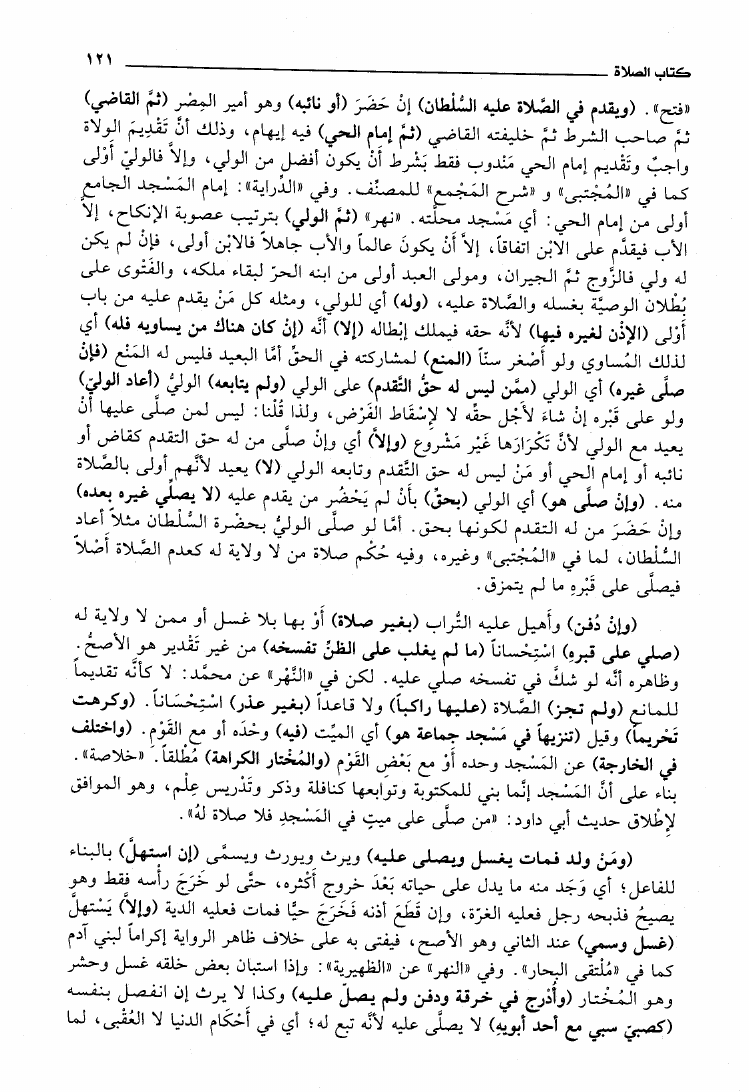 كتاب الصلاة ١٢١
«فتح». (ويقدم في الصَّلاة عليه السُّلْطان) إنْ حَضَرَ (أو نائبه) وهو أمير المِصْر (ثمَّ القاضي)
ثمَّ صاحب الشرط ثمَّ خليفته القاضي (ثمَّ إمام الحي) فيه إيهام، وذلك أنَّ تَقْدِيمَ الولاة
واجبٌ وتَقْديم إمام الحي مَنْدوب فقط بَشَرْط أنْ يكون أفضل من الولي، وإلاَّ فالوليّ أَوْلى
كما في «المُجْتبى» و «شرح المَجْمع» للمصنِّف. وفي «الدِّراية»: إمام المَسْجد الجامع
أولى من إمام الحي: أي مَسْجد محلَّته. «نهر» (ثمَّ الولي) بترتيب عصوبة الإنكاح، إلاَّ
الأب فيقدَّم على الابْن اتفاقاً، إلاَّ أنْ يكونَ عالماً والأب جاهلاً فالابْن أولى، فإنْ لم يكن
له ولي فالزَّوج ثمَّ الجيران، ومولى العبد أولى من ابنه الحرّ لبقاء ملكه، والفَتْوى على
بُطْلان الوصيَّة بغسله والصَّلاة عليه، (وله) أي للولي، ومثله كل مَنْ يقدم عليه من باب
أَوْلى (الإذْن لغيره فيها) لأنَّه حقه فيملك إبْطاله (إلا) أنَّه (إنْ كان هناك من يساويه فله) أي
لذلك المُساوي ولو أصْغر سنّاً (المنع) لمشاركته في الحقّ أمَّا البعيد فليس له المَنْع (فإنْ
صلَّى غيره) أي الولي (ممَّن ليس له حقُّ التَّقدم) على الولي (ولم يتابعه) الوليُّ (أعاد الوليّ)
ولو على قَبْره إنْ شاءَ لأجْل حقِّه لا لإسْقاط الفَرْض، ولذا قُلْنا: ليس لمن صلَّى عليها أنْ
يعيد مع الولي لأنَّ تَكْرَارَها غَيْر مَشْروع (وإلاَّ) أي وإنْ صلَّى من له حق التقدم كقاض أو
نائبه أو إمام الحي أو مَنْ ليس له حق التَّقدم وتابعه الولي (لا) يعيد لأنَّهم أولى بالصَّلاة
منه. (وإن صلَّى هو) أي الولي (بحقٍّ) بأن لم يَحْضُر من يقدم عليه (لا يصلِّي غيره بعده)
وإنْ حَضَرَ من له التقدم لكونها بحق. أمَّا لو صلَّى الوليُّ بحضْرة السُّلْطان مثلاً أعاد
السُّلطان، لما في «المُجْتبى» وغيره، وفيه حُكْم صلاة من لا ولاية له كعدم الصَّلاة أصْلاً
فيصلَّى على قَبْرهِ ما لم يتمزق.
(وإنْ دُفن) وأهيل عليه التُّراب (بغير صلاة) أوْ بها بلا غسل أو ممن لا ولاية له
(صلي على قبرهِ) اسْتِحْساناً (ما لم يغلب على الظنِّ تفسخه) من غير تَقْدير هو الأصحُّ.
وظاهره أنَّه لو شكَّ في تفسخه صلي عليه. لكن في «النَّهْر» عن محمَّد: لا كأنَّه تقديماً
للمانع (ولم تجز) الصَّلاة (عليها راكباً) ولا قاعداً (بغير عذر) اسْتِحْسَاناً. (وكرهت
تَحْريماً) وقيل (تنزيهاً في مَسْجد جماعة هو) أي الميِّت (فيه) وحْدَه أو مع القَوْمِ. (واختلف
في الخارجة) عن المَسْجد وحده أوْ مع بَعْض القَوْم (والمُخْتار الكراهة) مُطْلقاً. «خلاصة».
بناء على أنَّ المَسْجد إنَّما بني للمكتوبة وتوابعها كنافلة وذكر وتَدْريس عِلْم، وهو الموافق
لإطْلاق حديث أبي داود: «من صلَّى على ميتٍ في المَسْجدِ فلا صلاة لهُ».
(ومَنْ ولد فمات يغسل ويصلى عليه) ويرث ويورث ويسمَّى (إن استهلَّ) بالبناء
للفاعل؛ أي وَجَد منه ما يدل على حياته بَعْدَ خروج أكْثره، حتَّى لو خَرَجَ رأسه فقط وهو
يصيحُ فذبحه رجل فعليه الغرّة، وإن قَطَعَ أذنه فَخَرَجَ حيًّا فمات فعليه الدية (وإلاَّ) يَسْتهلَّ
(غسل وسمي) عند الثاني وهو الأصح، فيفتى به على خلاف ظاهر الرواية إكراماً لبني آدم
كما في «مُلْتقى البِحار». وفي «النهر» عن «الظهيرية»: وإذا استبان بعض خلقه غسل وحشر
وهو المُخْتار (وأُدْرج في خرقة ودفن ولم يصلّ عليه) وكذا لا يرث إن انفصل بنفسه
(كصبيّ سبي مع أحد أبويهِ) لا يصلَّى عليه لأنَّه تبع له؛ أي في أحْكام الدنيا لا العُقْبى، لما